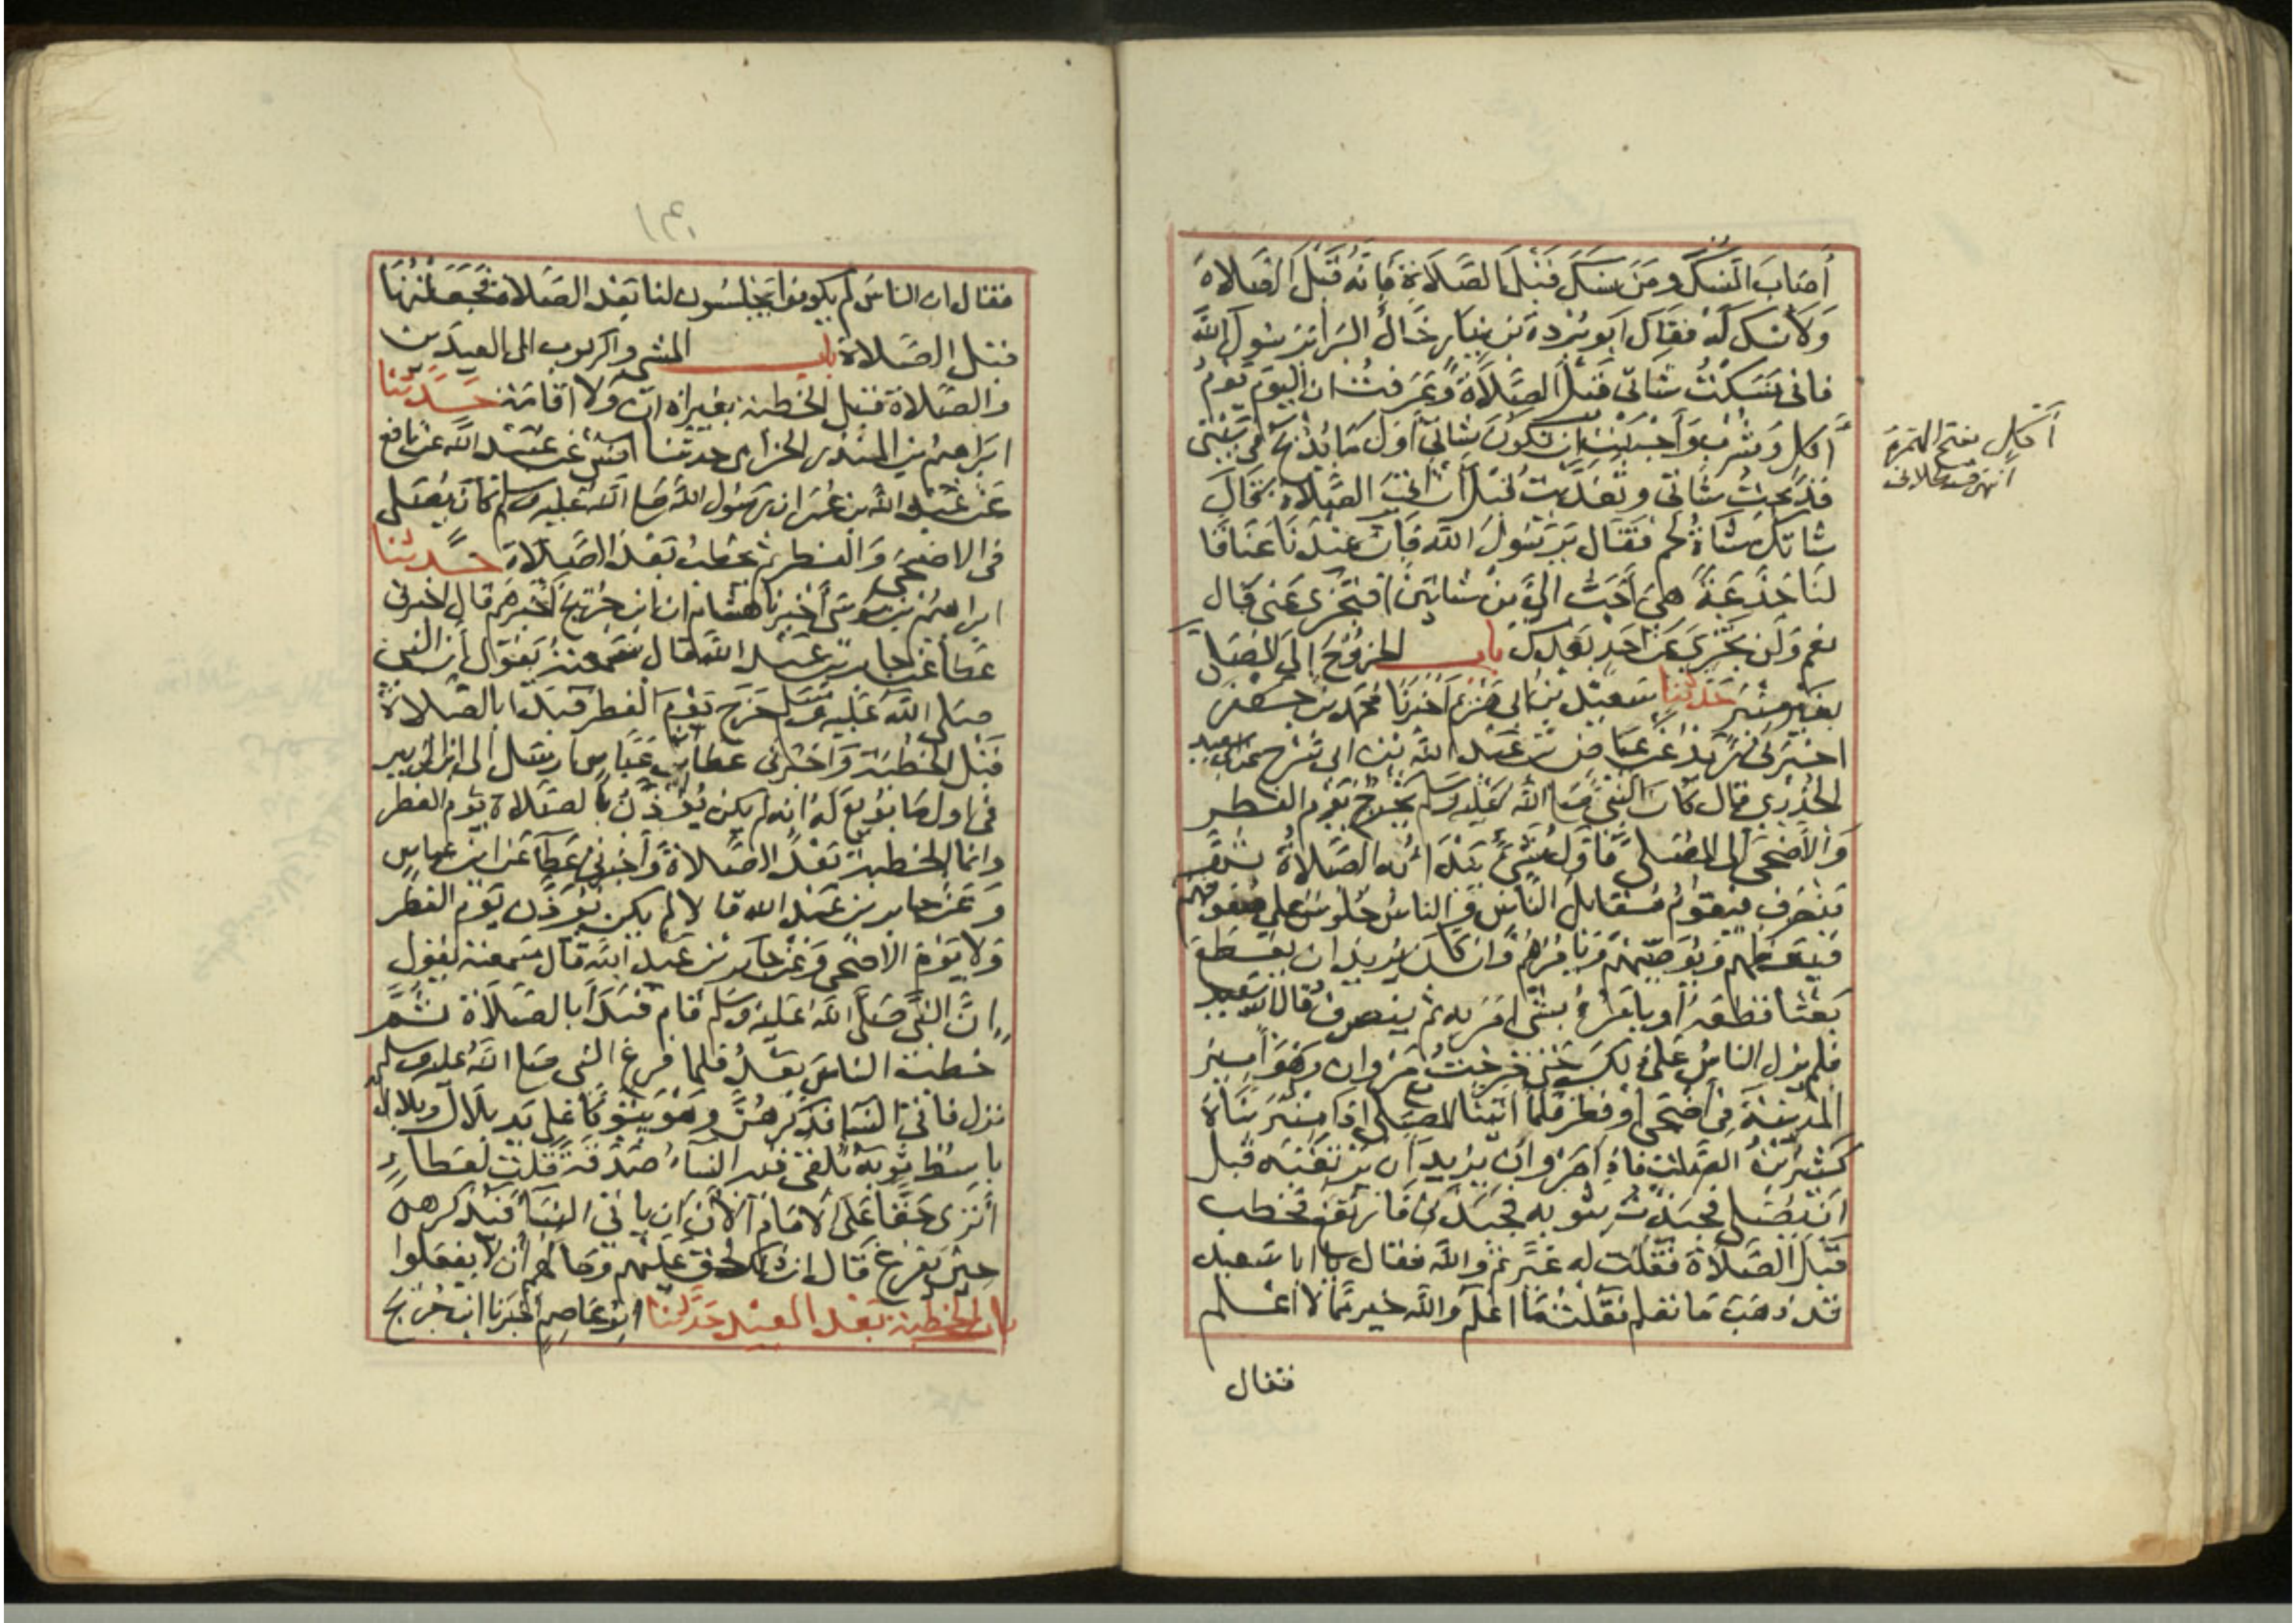 أصاب النسك ومن نسك قبل الصلاة فإنه قبل الصلاة
ولا نسك له فقال ابو بردة بن نيار خال البراء يا رسول الله
فاني نسكت شاتي قبل الصلاة وعرفت ان اليوم يوم
أكل وشرب وأحببت ان تكون شاتي أول ما يذبح في بيتي
فذبحت شاتي وتغديت قبل أن آتي الصلاة قال
شاتك شاة لحم فقال يا رسول الله فان عندنا عناقا
لنا جذعة هي أحب الي من شاتين افتجزي عني قال
نعم ولن تجزي عن احد بعدك باب الخروج إلى المصلى
بغير منبر حدثنا سعيد بن ابي مريم اخبرنا محمد بن جعفر
اخبرني زيد عن عياض بن عبد الله بن ابي سرح عن ابي سعيد
الخدري قال كان النبي صلى الله عليه وسلم يخرج يوم الفطر
والأضحى إلى المصلى فأول شيء يبدأ به الصلاة ثم
ينصرف فيقوم مقابل الناس والناس جلوس على صفوفهم
فيعظهم ويوصيهم ويامرهم وان كان يريد ان يقطع
بعثا قطعه أو يأمر بشيء امر به ثم ينصرف قال ابو سعيد
فلم يزل الناس على ذلك حتى خرجت مع مروان وهو أمير
المدينة في أضحى أو فطر فلما اتينا المصلى اذا منبر بناه
كثير بن الصلت فاذا مروان يريد أن يرتقيه قبل
ان يصلي فجبذت بثوبه فجبذني فارتفع فخطب
قبل الصلاة فقلت له غيرتم والله فقال يا ابا سعيد
قد ذهب ما تعلم فقلت ما اعلم والله خير مما لا اعلم
فقال
أكل بفتح الهمزة
انتهى قسطلاني
١٣١
فقال ان الناس لم يكونوا يجلسون لنا بعد الصلاة فجعلتها
قبل الصلاة باب المشي والركوب الى العيدين
والصلاة قبل الخطبة بغير اذان ولا اقامة حدثنا
ابراهيم بن المنذر الحزامي حدثنا انس عن عبيد الله عن نافع
عن عبد الله بن عمر ان رسول الله صلى الله عليه وسلم كان يصلي
في الاضحى والفطر ثم يخطب بعد الصلاة حدثنا
ابراهيم بن موسى أخبرنا هشام ان ابن جريج أخبرهم قال اخبرني
عطاء عن جابر بن عبد الله قال سمعته يقول إن النبي
صلى الله عليه وسلم خرج يوم الفطر فبدا بالصلاة
قبل الخطبة واخبرني عطاء أن ابن عباس ارسل الى ابن الزبير
في اول ما بويع له انه لم يكن يؤذن بالصلاة يوم الفطر
وانما الخطبة بعد الصلاة وأخبرني عطاء عن ابن عباس
وعن جابر بن عبد الله قالا لم يكن يؤذن يوم الفطر
ولا يوم الاضحى وعن جابر بن عبد الله قال سمعته يقول
ان النبي صلى الله عليه وسلم قام فبدأ بالصلاة ثم
خطب الناس بعد فلما فرغ النبي صلى الله عليه وسلم
نزل فاتى النساء فذكرهن وهو يتوكأ على يد بلال وبلال
باسط ثوبه تلقي فيه النساء صدقة قلت لعطاء
أترى حقا على الامام الآن ان ياتي النساء فيذكرهن
حين يفرغ قال ان ذلك لحق عليهم وما لهم أن لا يفعلوا
باب الخطبة بعد العيد حدثنا ابو عاصم اخبرنا ابن جريج